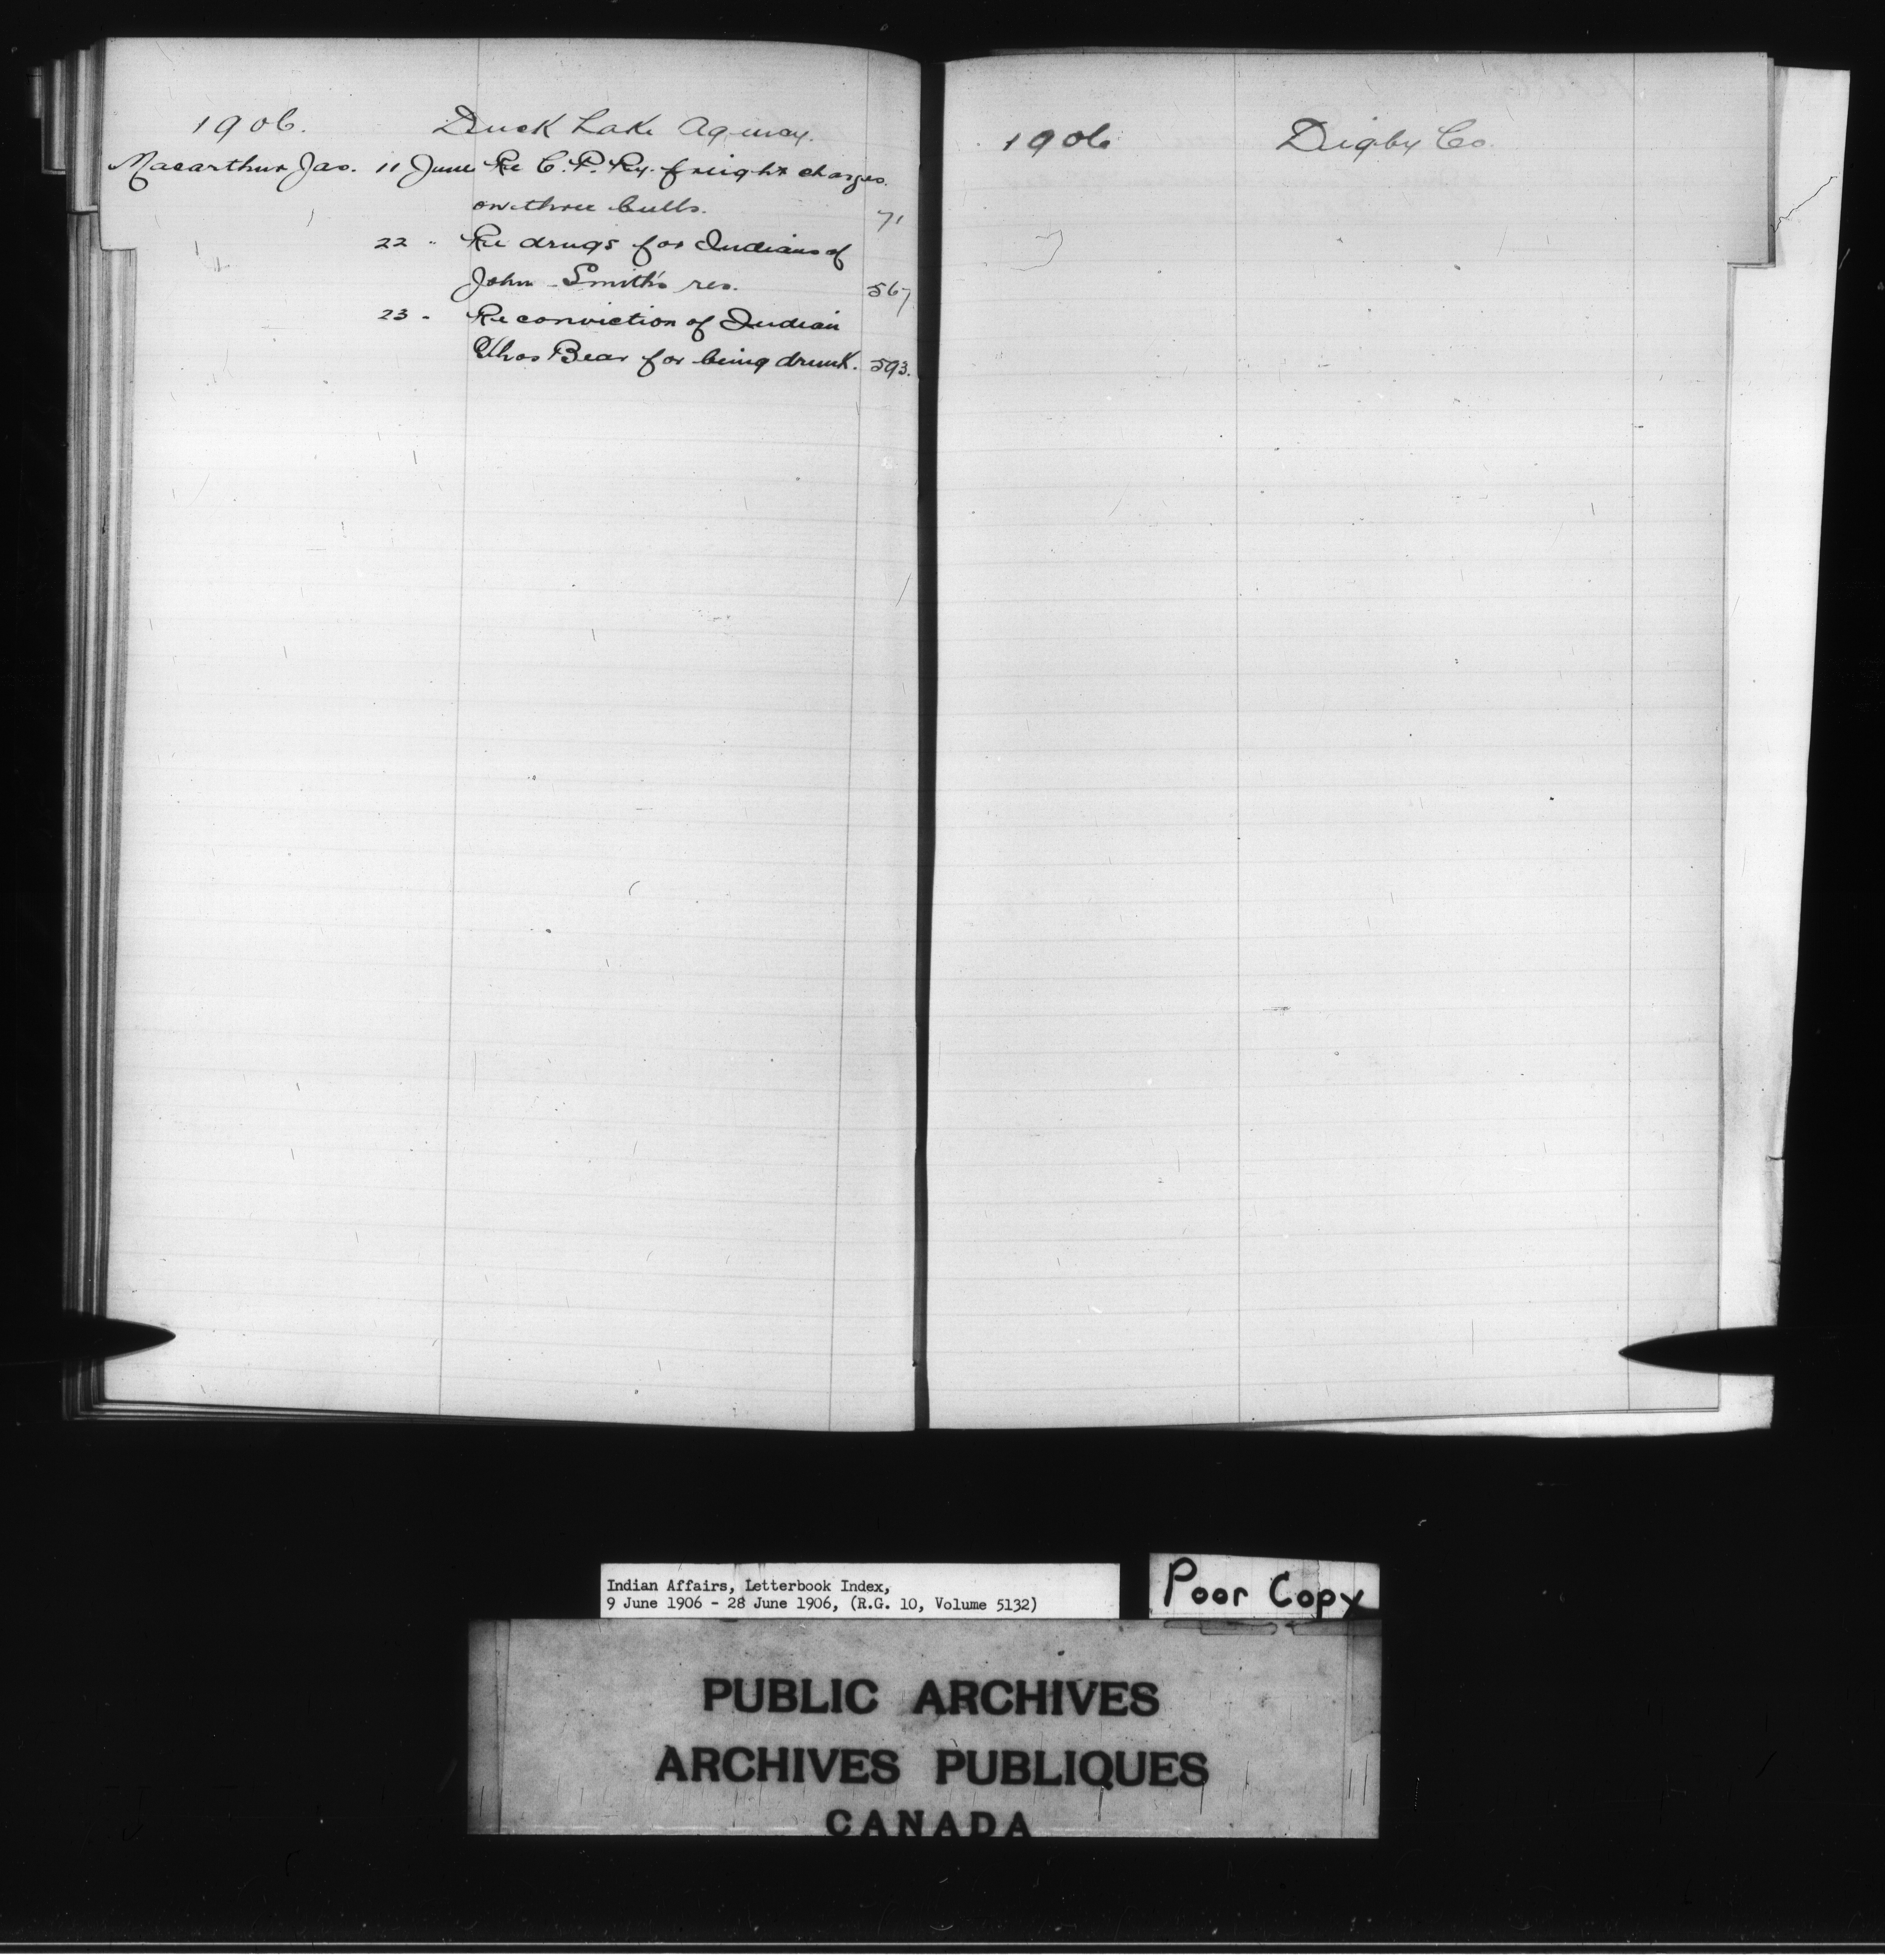 1906. Duck Lake Agency.
Macarthur Jas. 11 June Re C. P. Ry. freight charges
on three bulls. 71
22 " Re drugs for Indians of
John Smith's res. 567
23 " Re conviction of Indian
Thos Bear for being drunk. 593.
1906 Digby Co.
Indian Affairs, Letterbook Index,
9 June 1906 - 28 June 1906, (R.G. 10, Volume 5132)
Poor Copy
PUBLIC ARCHIVES
ARCHIVES PUBLIQUES
CANADA